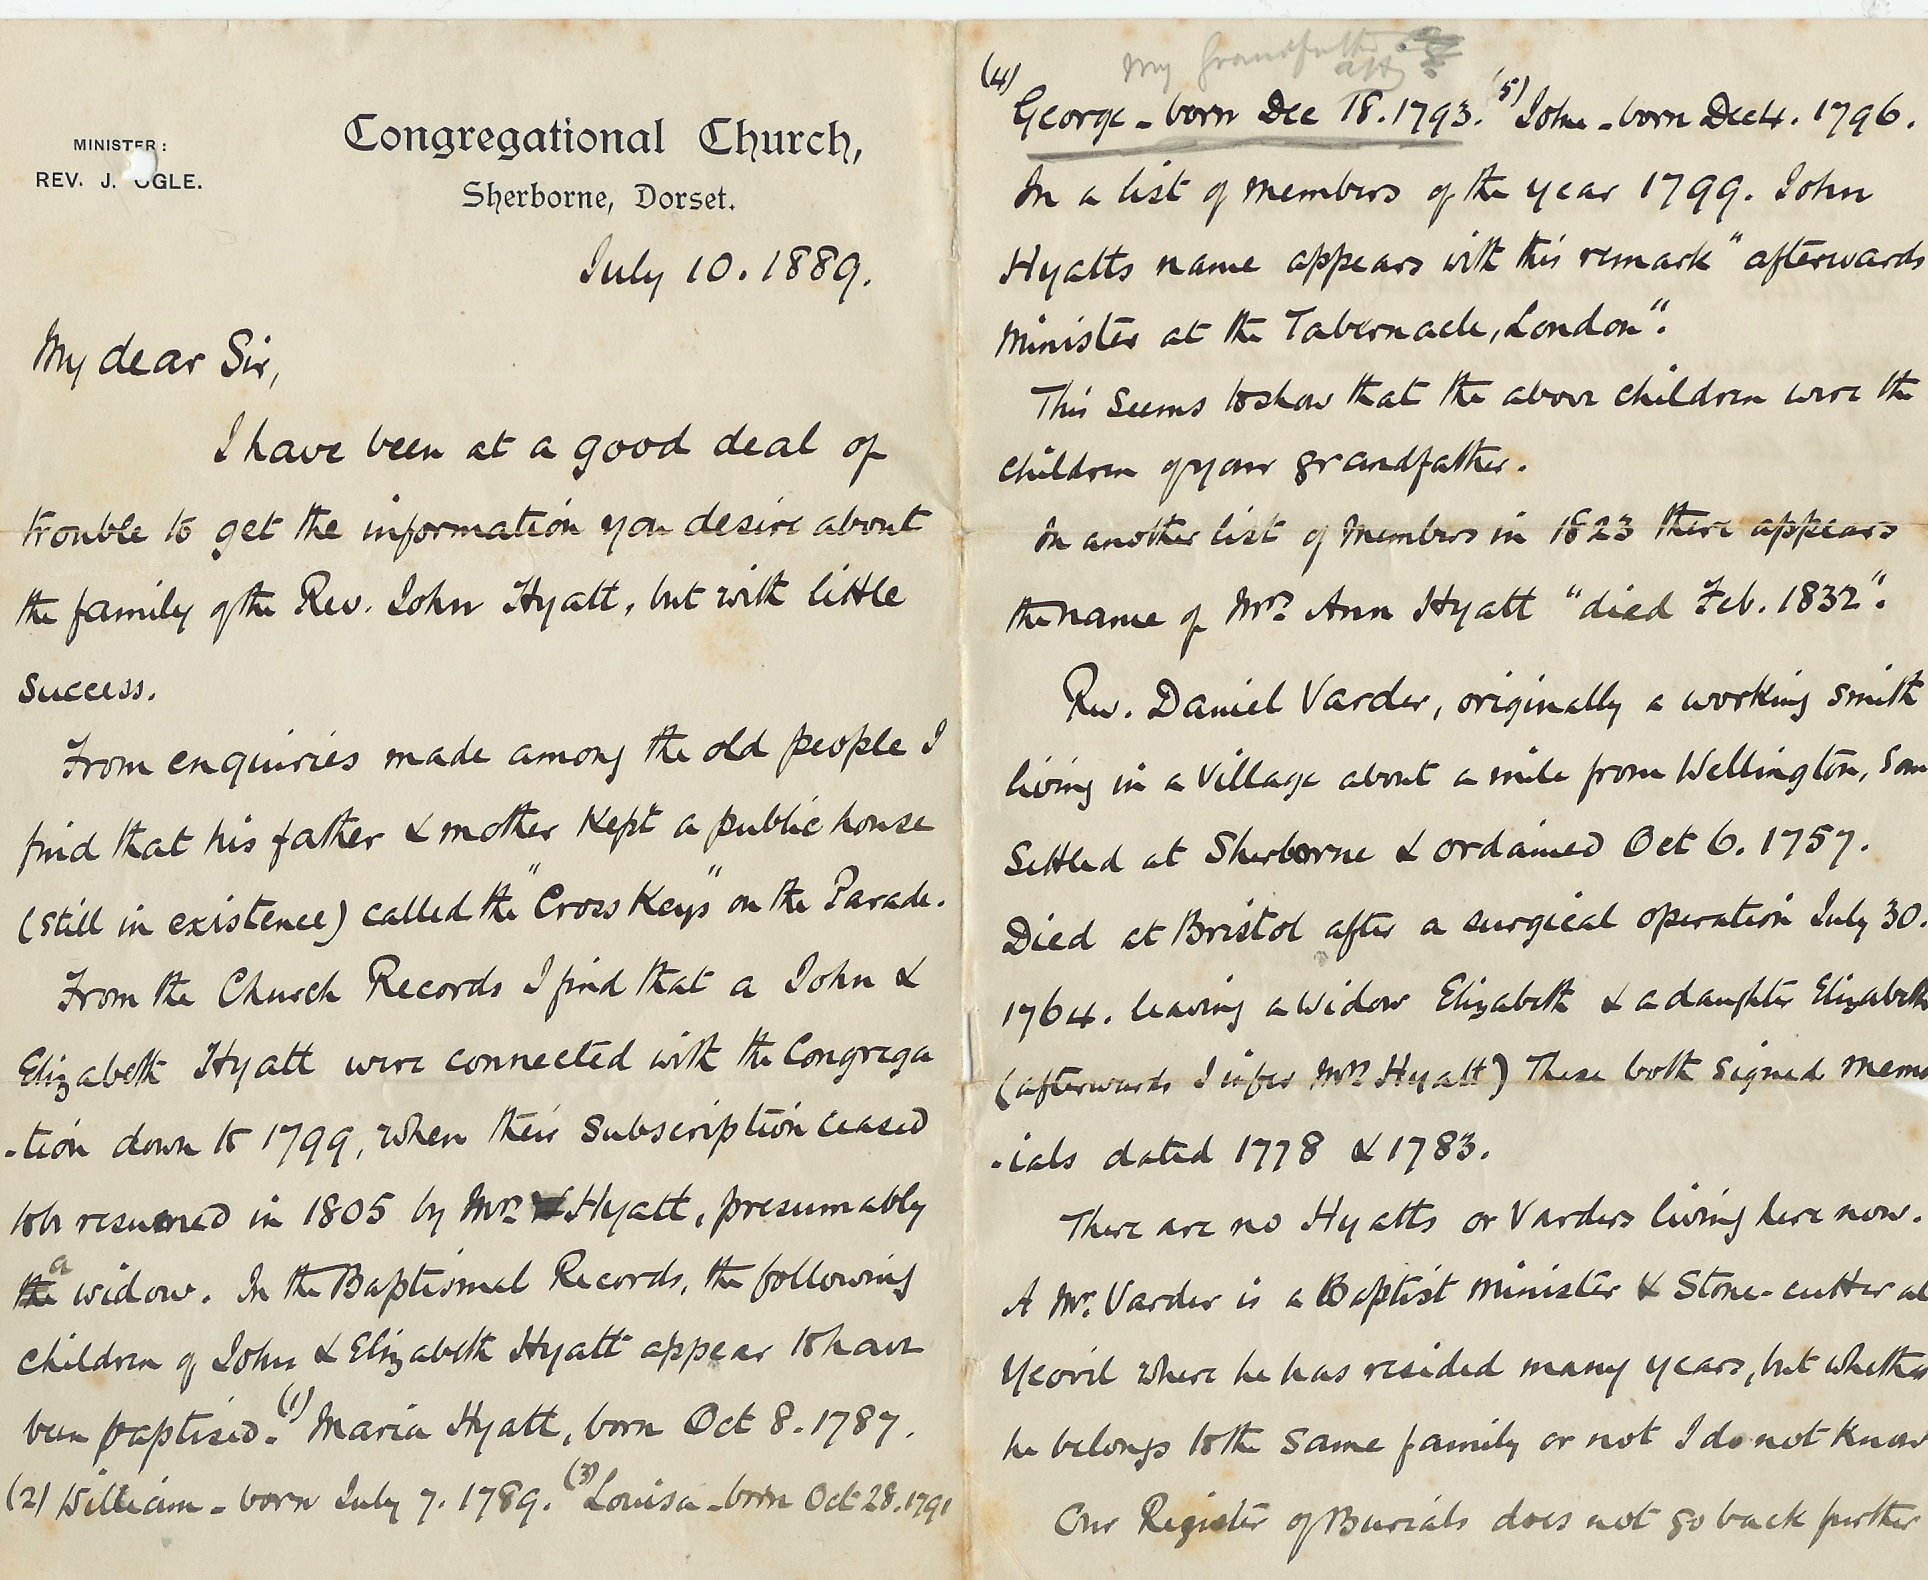 MINISTER:
REV. J. OGLE.
Congregational Church,
Sherborne, Dorset.
July 10. 1889.
My dear Sir,
I have been at a good deal of
trouble to get the information you desire about
the family of the Rev. John Hyatt, but with little
success.
From enquiries made among the old people I
find that his father & mother kept a public house
(still in existence) called the "Cross Keys" on the Parade.
From the Church Records I find that a John &
Elizabeth Hyatt were connected with the Congrega
-tion down to 1799, when their subscription ceased
to be resumed in 1805 by Mrs. Hyatt, presumably
the a widow. In the Baptismal Records, the following
children of John & Elizabeth Hyatt appear to have
been baptised. (1) Maria Hyatt, born Oct 8. 1787.
(2) William - born July 7. 1789. (3) Louisa - born Oct 28. 1791
My Grandfather
(4) George - born Dec 18. 1793. (5) John - born Dec 4. 1796.
In a list of members of the year 1799. John
Hyatts name appears with this remark "afterwards
Minister at the Tabernacle, London".
This seems to show that the above children were the
children of your grandfather.
In another list of Members in 1823 there appears
the name of Mrs. Ann Hyatt "died Feb. 1832".
Rev. Daniel Varder, originally a working smith
living in a village about a mile from Wellington, Som
Settled at Sherborne & ordained Oct 6. 1757.
Died at Bristol after a surgical operation July 30.
1764. leaving a widow Elizabeth & a daughter Elizabeth
(afterwards I infer Mrs. Hyatt) These both signed memo
-ials dated 1778 & 1783.
There are no Hyatts or Varders living here now.
A Mr. Varder is a Baptist Minister & Stone-cutter at
Yeovil where he has resided many years, but whether
he belongs to the same family or not I do not know
Our Register of Burials does not go back further